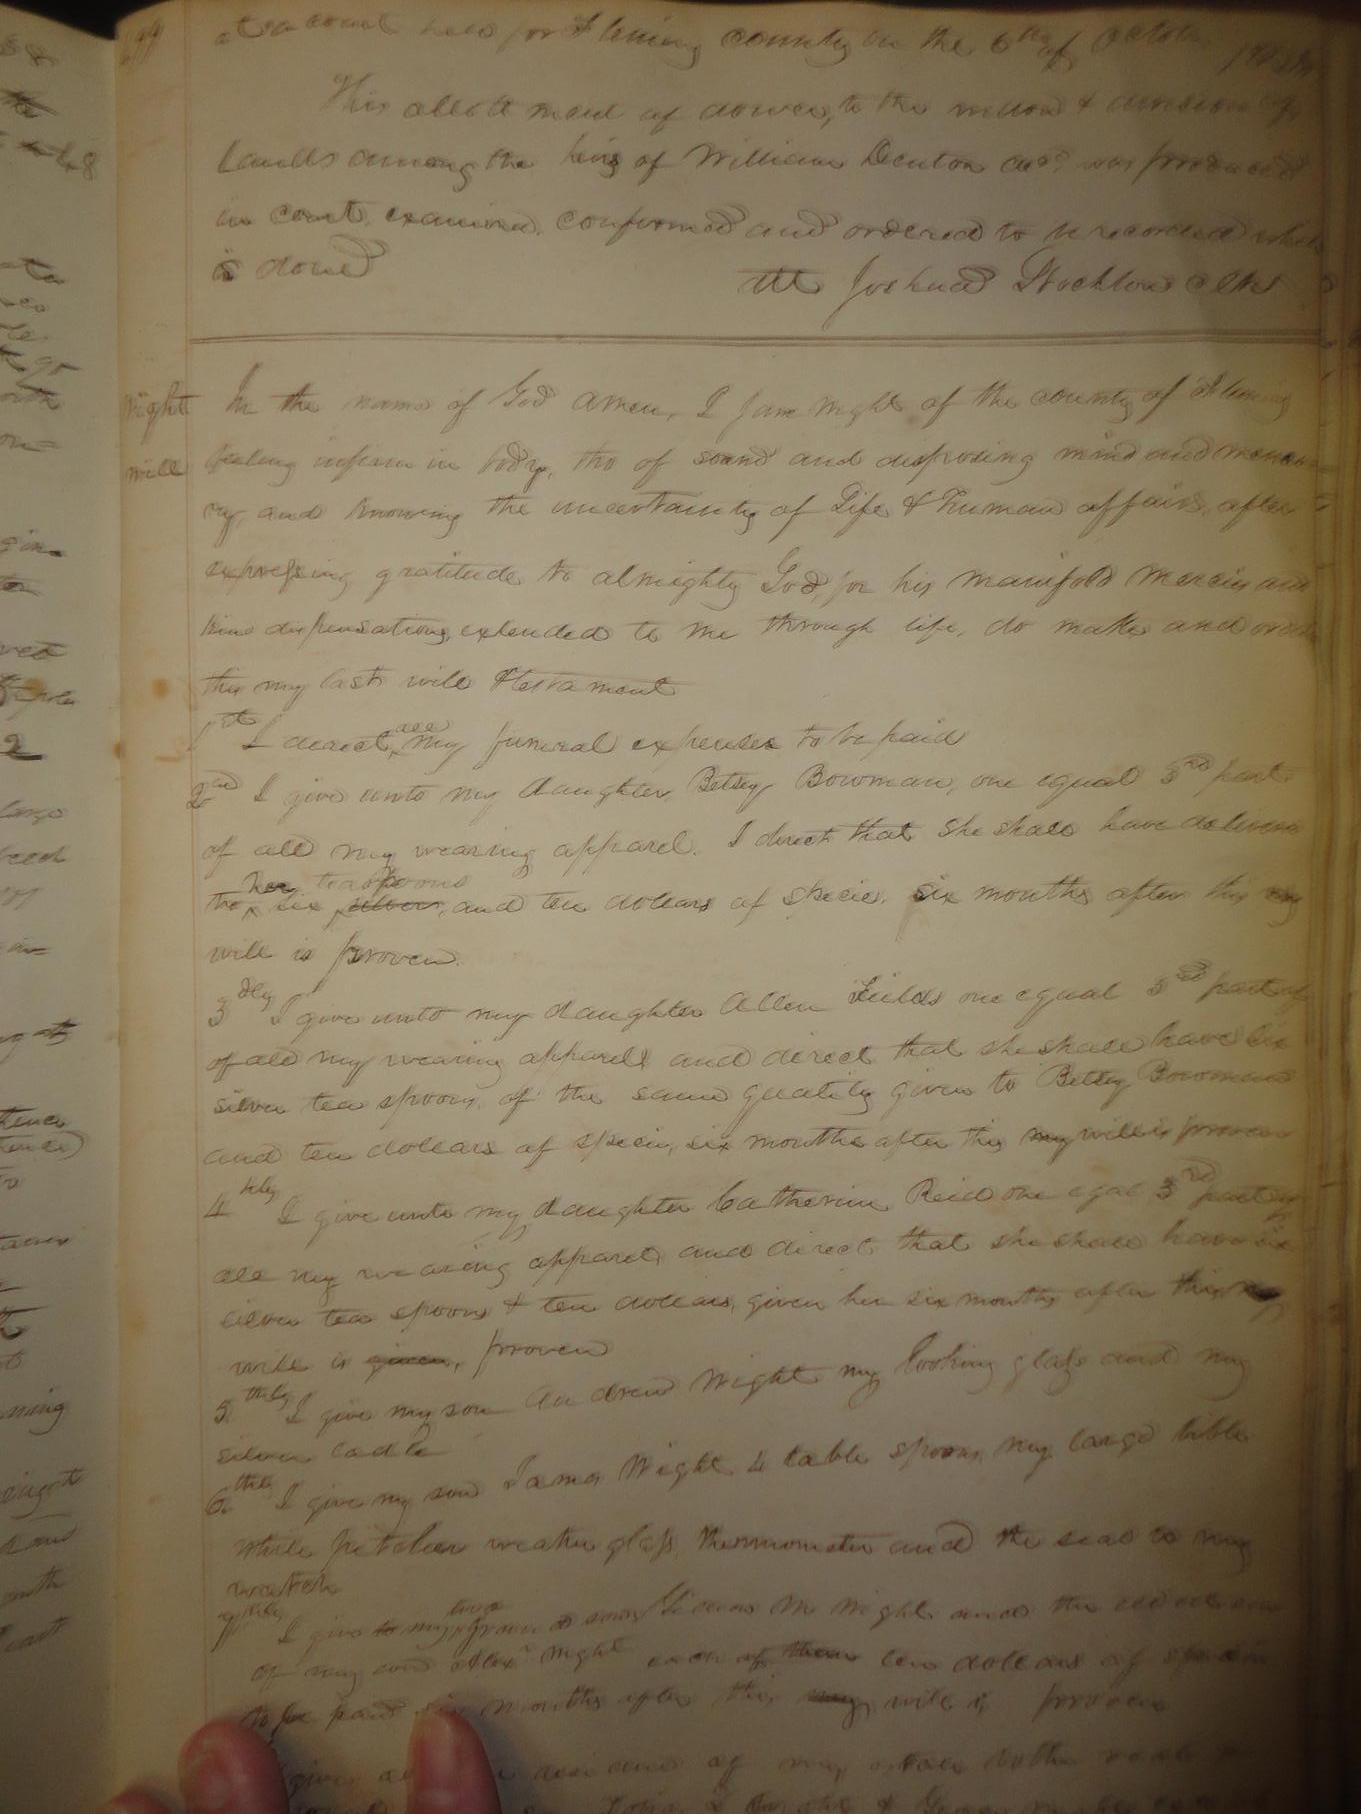 at a court held for Fleming county on the 6th of October
This allottment of dower, to the widow & division of
Lands among the heirs of William Denton decd. was produced
in court examined, confirmed and ordered to be recorded which
is done
Att Joshua Stockton clk
Wight In the name of God Amen, I Jane Wight of the county of Fleming
will feeling infirm in body, tho of sound and disposing mind and memo
ry, and knowing the uncertainty of Life & human affairs, after
expressing gratitude to almighty God, for his manifold mercies and
kind dispensations, extended to me through life, do make and ordain
this my last will & testament
1st I derect, all my funeral expenses to be paid
2nd I give unto my daughter, Betsey Bowman, one equal 3rd part
of all my wearing apparel. I direct that she shall have delivered
to her six silver, tea spoons and ten dollars of specie, six months after this my
will is proven.
3dly I give unto my daughter Allen Fields one equal 3rd part of
of all my wearing apparell and direct that she shall have six
silver tea spoons, of the same quality given to Betsey Bowman
and ten dollars of specie, six months after this my will is proven
4thly I give unto my daughter Catherine Reid one eqal 3rd part of
all my wearing apparel, and direct that she shall have six
silver tea spoons & ten dollars, given her six months after this my
will is given, proven
5thly I give my son Andrew Wight my looking glass and my
silver ladle
6thly I give my son James Wight 4 table spoons, my large bible
white pitcher weather glass, thermometer and the seal to my
watch
7thly I give to my two grand sons M Wight and the
of my son Alexr Wight each of them ten dollars of specie
to be paid six months after this my will is proven
give of my estate both real